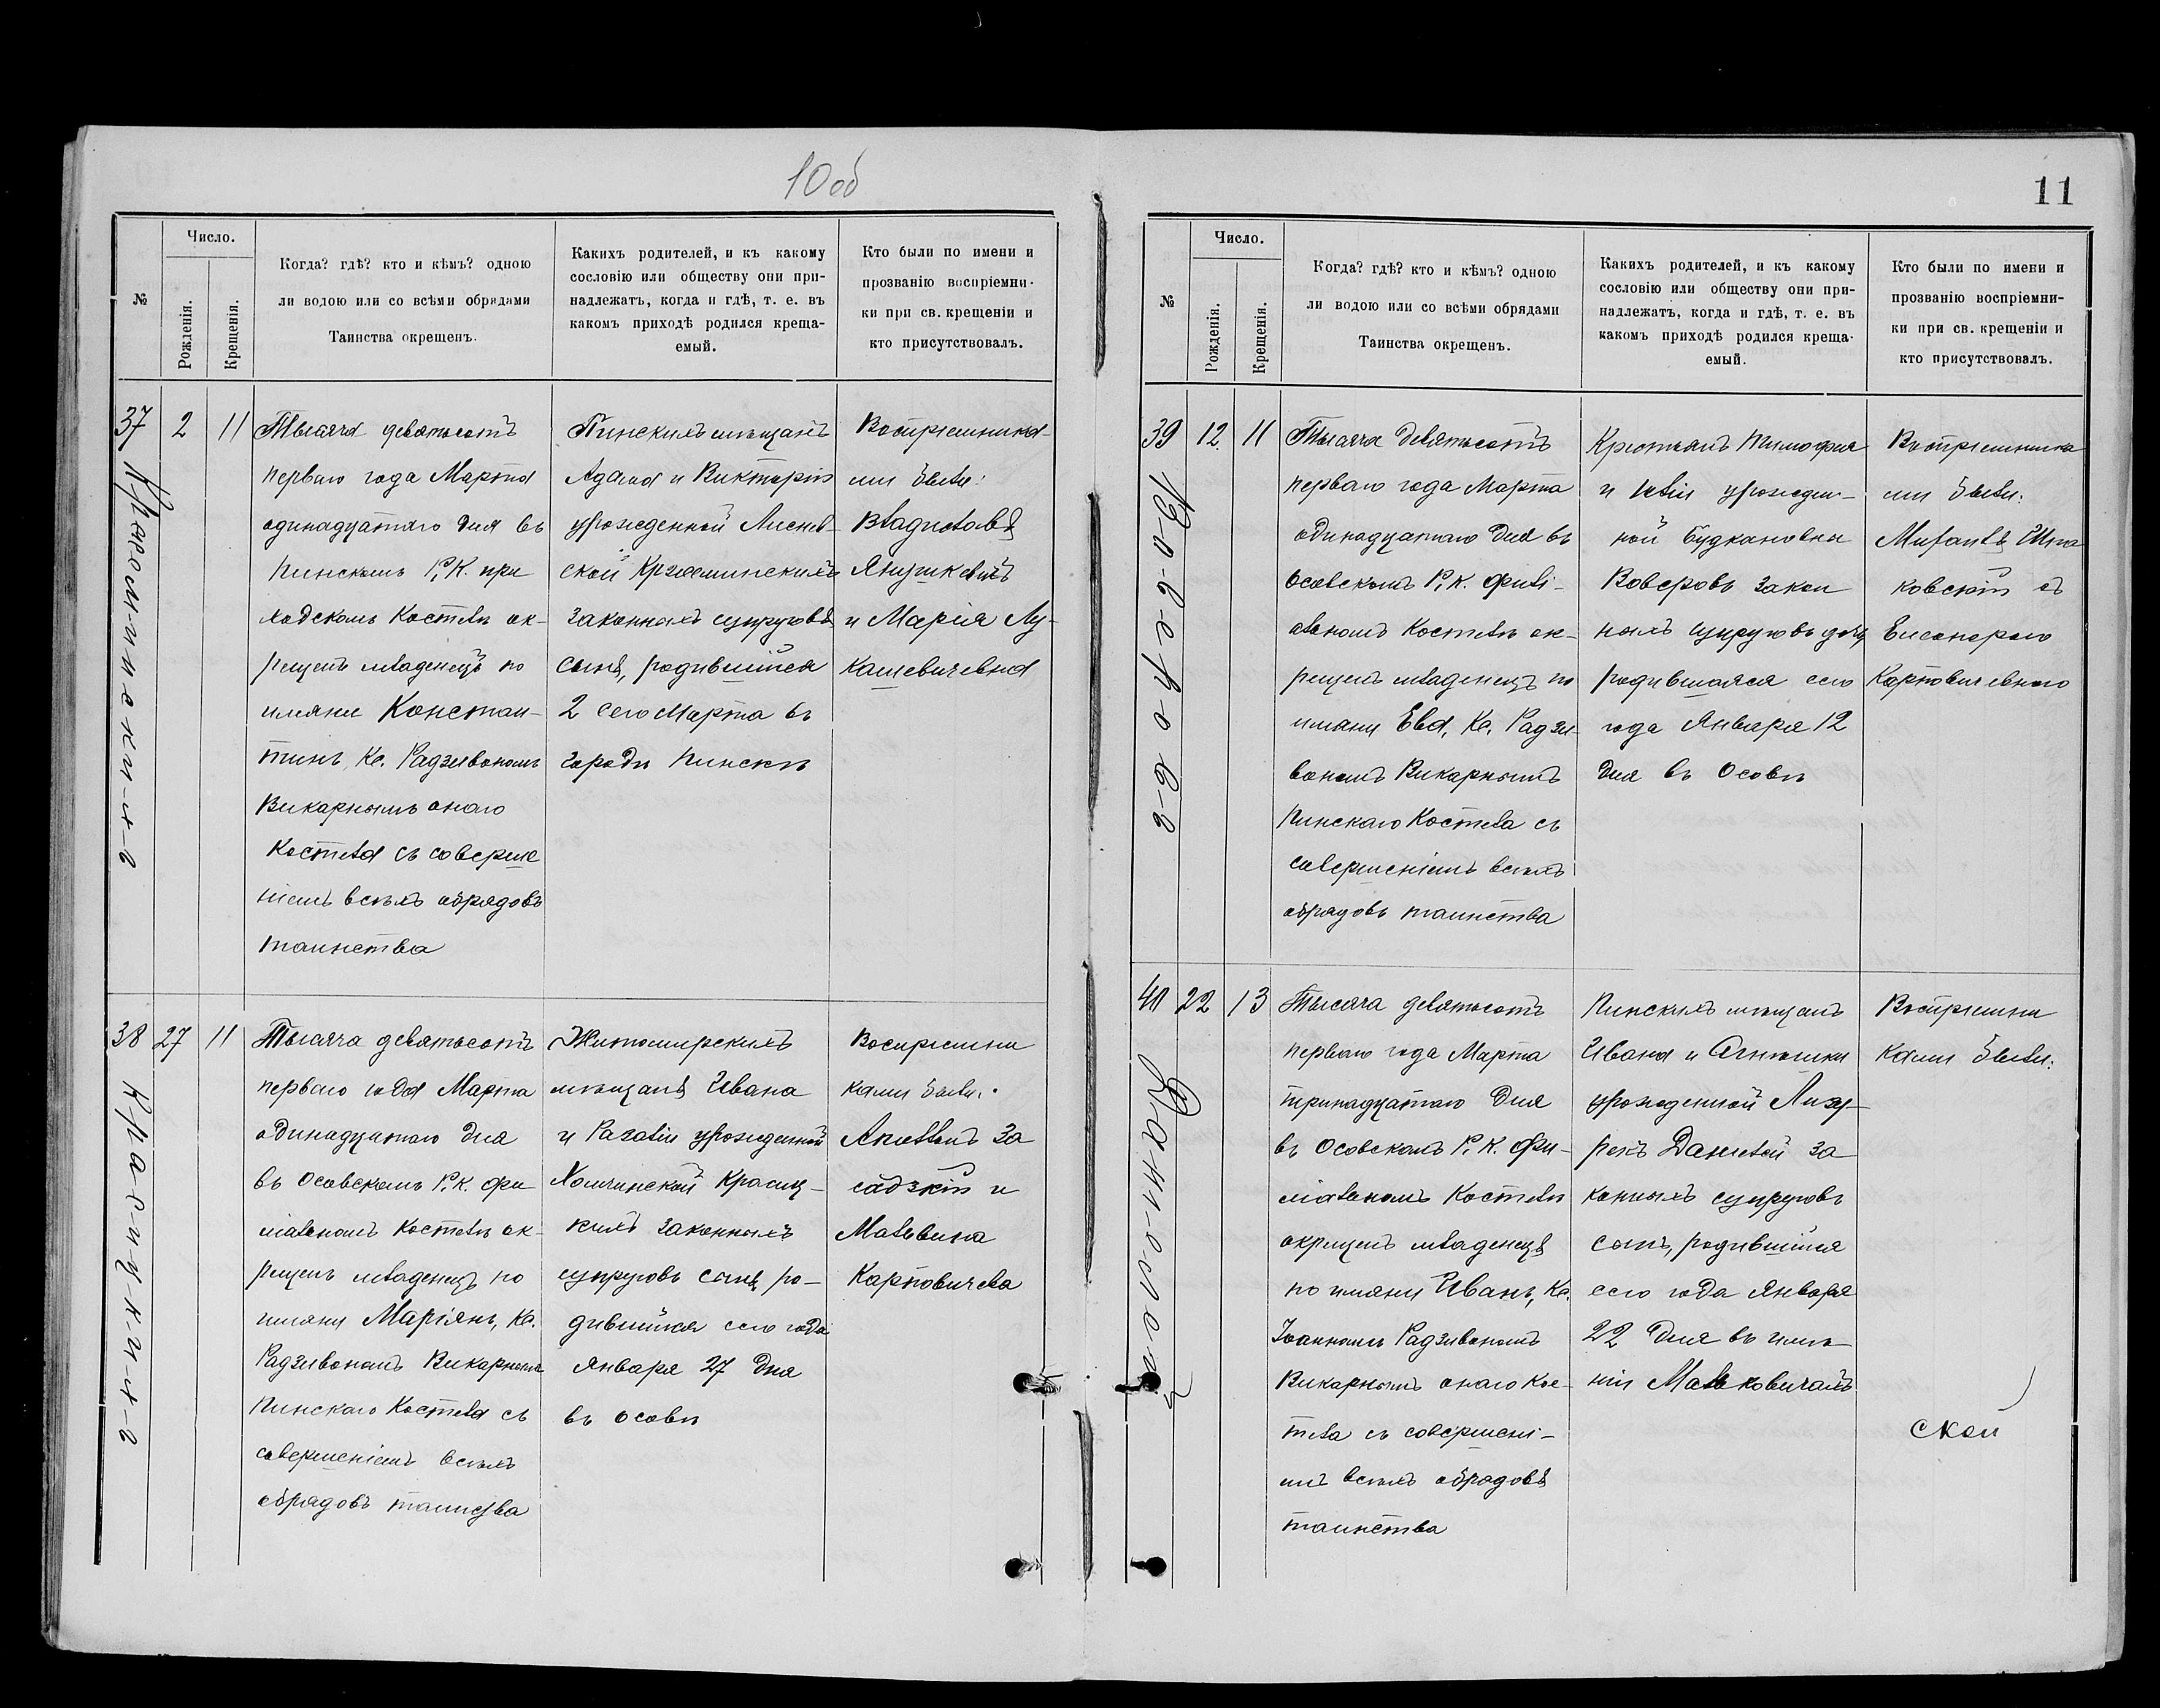 10 об
11
№
Число.
Рожденія.
Крещенія.
Когда? гдѣ? кто и кѣмъ? одною
ли водою или со всѣми обрядами
Таинства окрещенъ.
Какихъ родителей, и къ какому
сословію или обществу они при-
надлежатъ, когда и гдѣ, т. е. въ
какомъ приходѣ родился креща-
емый.
Кто были по имени и
прозванію воспріемни-
ки при св. крещеніи и
кто присутствовалъ.
37
2
11
Тысяча девятьсотъ
перваго года Марта
одинадцатаго дня въ
Пинскомъ Р. К. при
ходскомъ Костелѣ ок-
рещенъ младенецъ по
имяни Констан-
тинъ, Кс. Радзивономъ
Викарнымъ онаго
Костела съ соверше
ніемъ всѣхъ обрядовъ
таинства
Пинскихъ мѣщанъ
Адама и Викторіи
урожденной Лиснев-
ской Кржеминскихъ
законныхъ супруговъ
сынъ, родившійся
2 сего Марта въ
городѣ Пинскѣ
Воспріемника-
ми были:
Владиславъ
Янушкевичъ
и Марія Лу-
кашевичевна
38
27
11
Тысяча девятьсотъ
перваго года Марта
одинадцатаго дня
въ Осовскомъ Р. К. фи
ліальномъ Костелѣ ок-
рещенъ младенецъ по
имяни Маріянъ, Кс.
Радзивономъ Викарнымъ
Пинскаго Костела съ
совершеніемъ всѣхъ
обрядовъ таинства
Житомирскихъ
мѣщанъ Ивана
и Розаліи урожденной
Хомчинской Красиц-
кихъ законныхъ
супруговъ сынъ, ро-
дившійся сего года
Января 27 дня
въ Осовѣ
Воспріемни
ками были:
За
садзкій и
Мальвина
Карповичева
К-р-а-с-и-ц-к-і-й
№
Число.
Рожденія.
Крещенія.
Когда? гдѣ? кто и кѣмъ? одною
ли водою или со всѣми обрядами
Таинства окрещенъ.
Какихъ родителей, и къ какому
сословію или обществу они при-
надлежатъ, когда и гдѣ, т. е. въ
какомъ приходѣ родился креща-
емый.
Кто были по имени и
прозванію воспріемни-
ки при св. крещеніи и
кто присутствовалъ.
39
12
11
Тысяча девятьсотъ
перваго года Марта
одинадцатаго дня въ
Осовскомъ Р. К. филі-
альномъ Костелѣ ок-
рещенъ младенецъ по
имяни Ева, Кс. Радзи-
вономъ Викарнымъ
Пинскаго Костела съ
совершеніемъ всѣхъ
обрядовъ таинства
Крестьянъ Тимофея
и Юліи урожден-
ной Будкановны
Воверовъ закон
ныхъ супруговъ дочь,
родившаяся сего
года Января 12
дня въ Осовѣ
Воспріемника
ми были:
ковскій съ
Карповичевною
40
22
13
Тысяча девятьсотъ
перваго года Марта
тринадцатаго дня
въ Осовскомъ Р. К. фи-
ліальномъ Костелѣ
окрещенъ младенецъ
по имяни Иванъ, Кс.
Іоанномъ Радзивономъ
Викарнымъ онаго Кос-
тела съ совершені-
мъ всѣхъ обрядовъ
таинства
Пинскихъ мѣщанъ
Ивана и Агнешки
урожденной
Данилей за
конныхъ супруговъ
сынъ, родившійся
сего года Января
22 дня въ имѣ-
ніи Мальковичахъ
Воспріемни
ками были:
ской